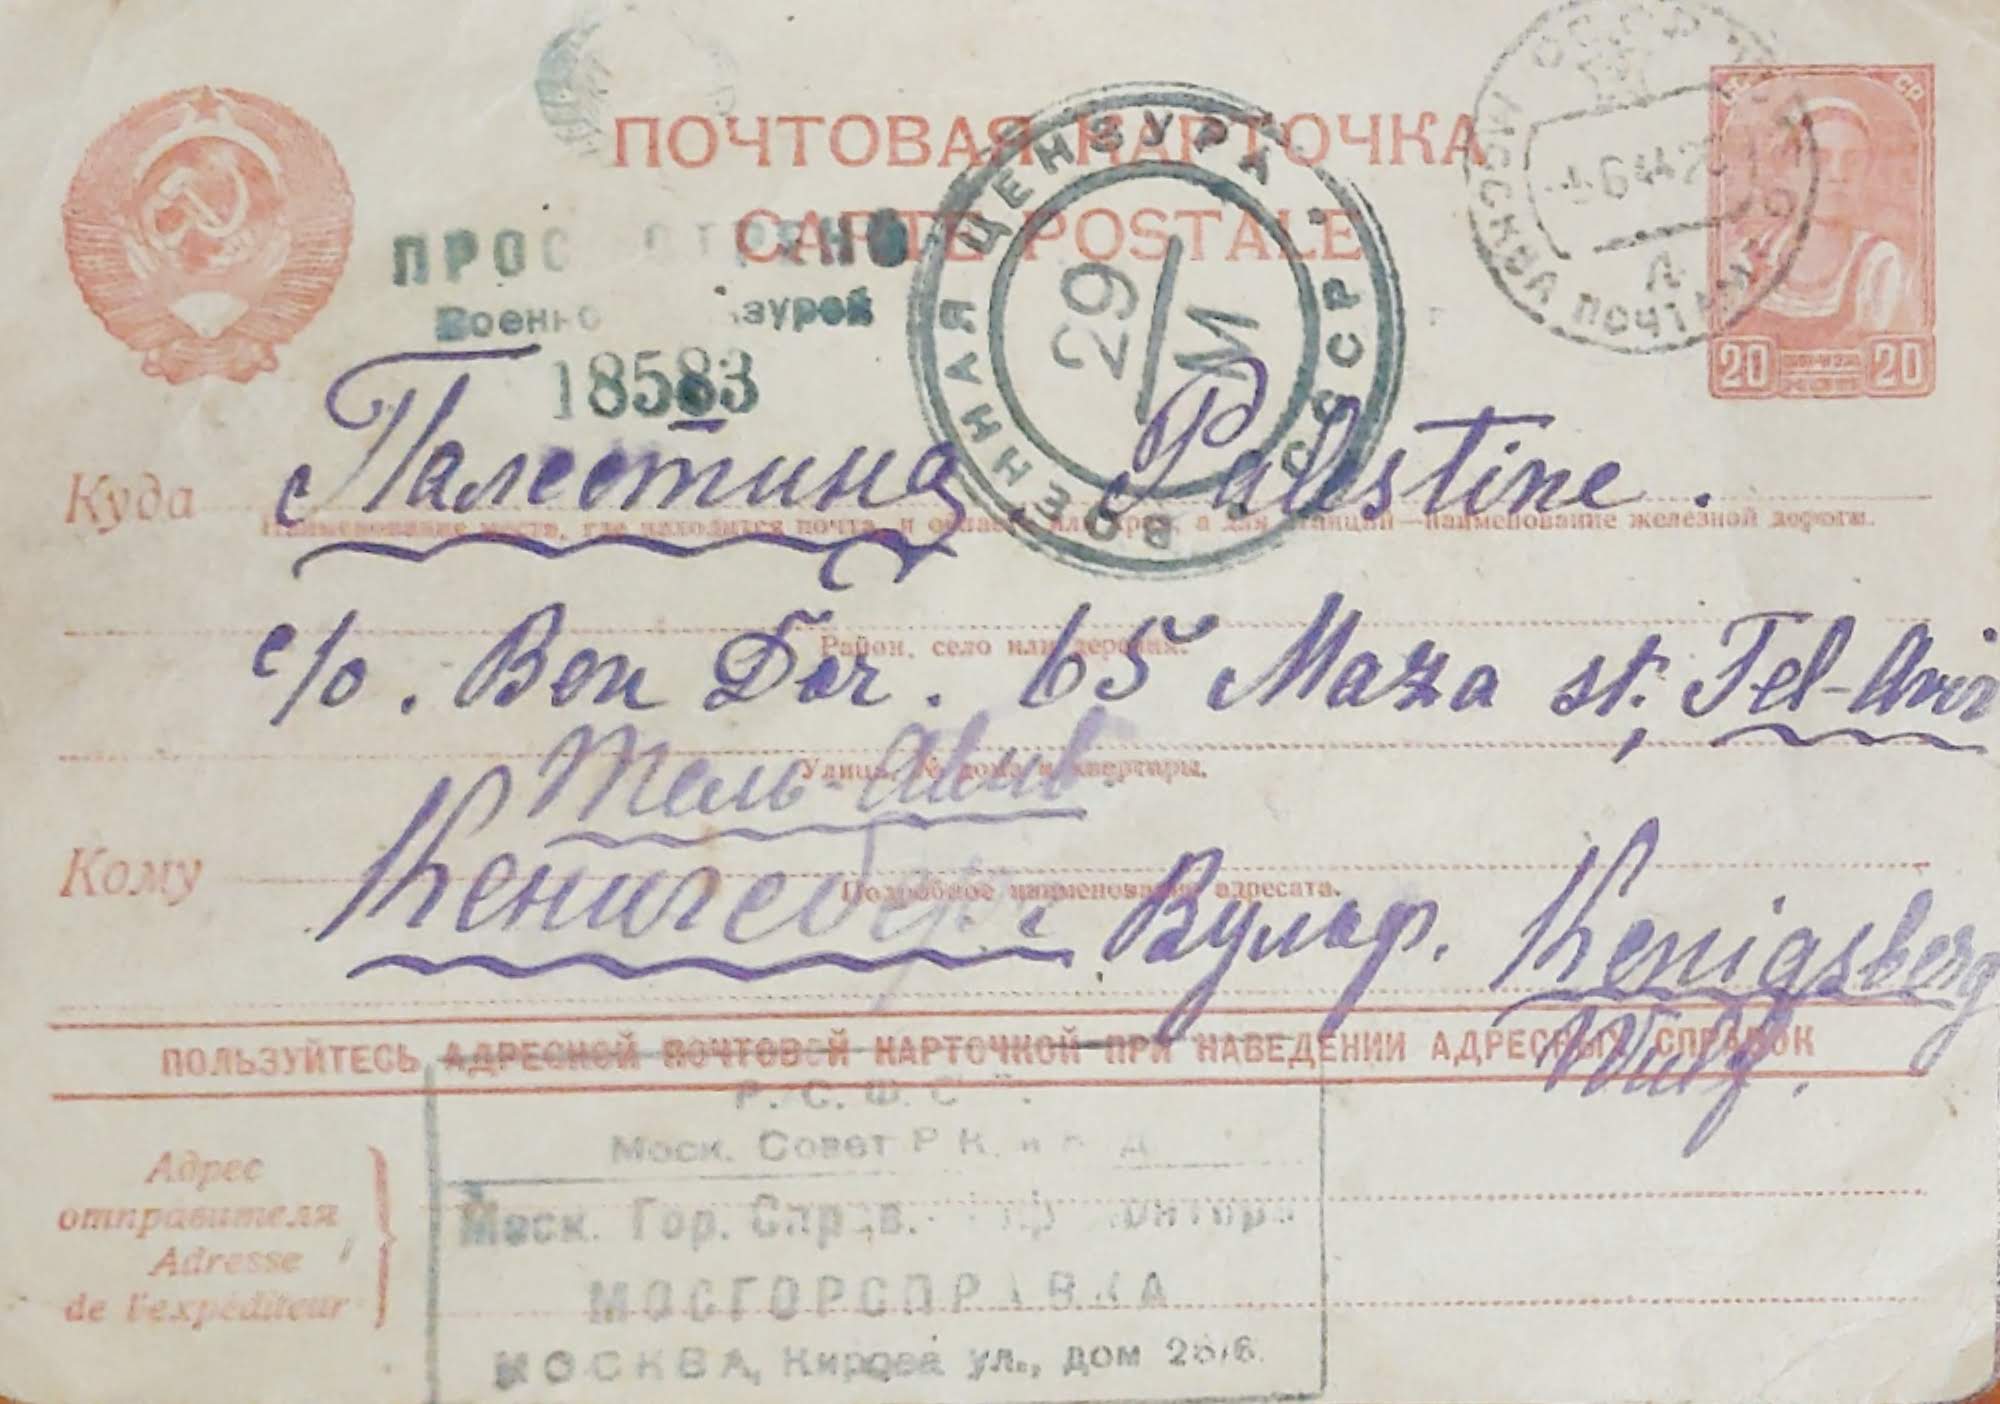 ПОЧТОВАЯ КАРТОЧКА
CARTE POSTALE
СССР
МОСКВА ПОЧТАМТ
6 44
20 КОП 20
ВОЕННАЯ ЦЕНЗУРА СССР
29/М
ПРОСМОТРЕНО
Военной Цензурой
18583
Куда Палестина, Palestine.
Наименование места, где находится почта, и области или края, а для станций—наименование железной дороги.
Район, село или деревня.
c/o. Ben Dor. 65 Maza st; Tel-Aviv
Тель-Авив
Улица, № дома и квартиры.
Кому Кенигсберг Вульф. Kenigsberg
Wulf.
Подробное наименование адресата.
ПОЛЬЗУЙТЕСЬ АДРЕСНОЙ ПОЧТОВОЙ КАРТОЧКОЙ ПРИ НАВЕДЕНИИ АДРЕСНЫХ СПРАВОК
Р. С. Ф. С. Р.
Моск. Совет Р. К. и К. Д.
Моск. Гор. Справ. контора
МОСГОРСПРАВКА
МОСКВА, Кирова ул., дом 26/6.
Адрес
отправителя
Adresse
de l'expéditeur